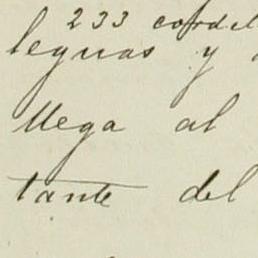 233 cordel
leguas y
llega al
tante del